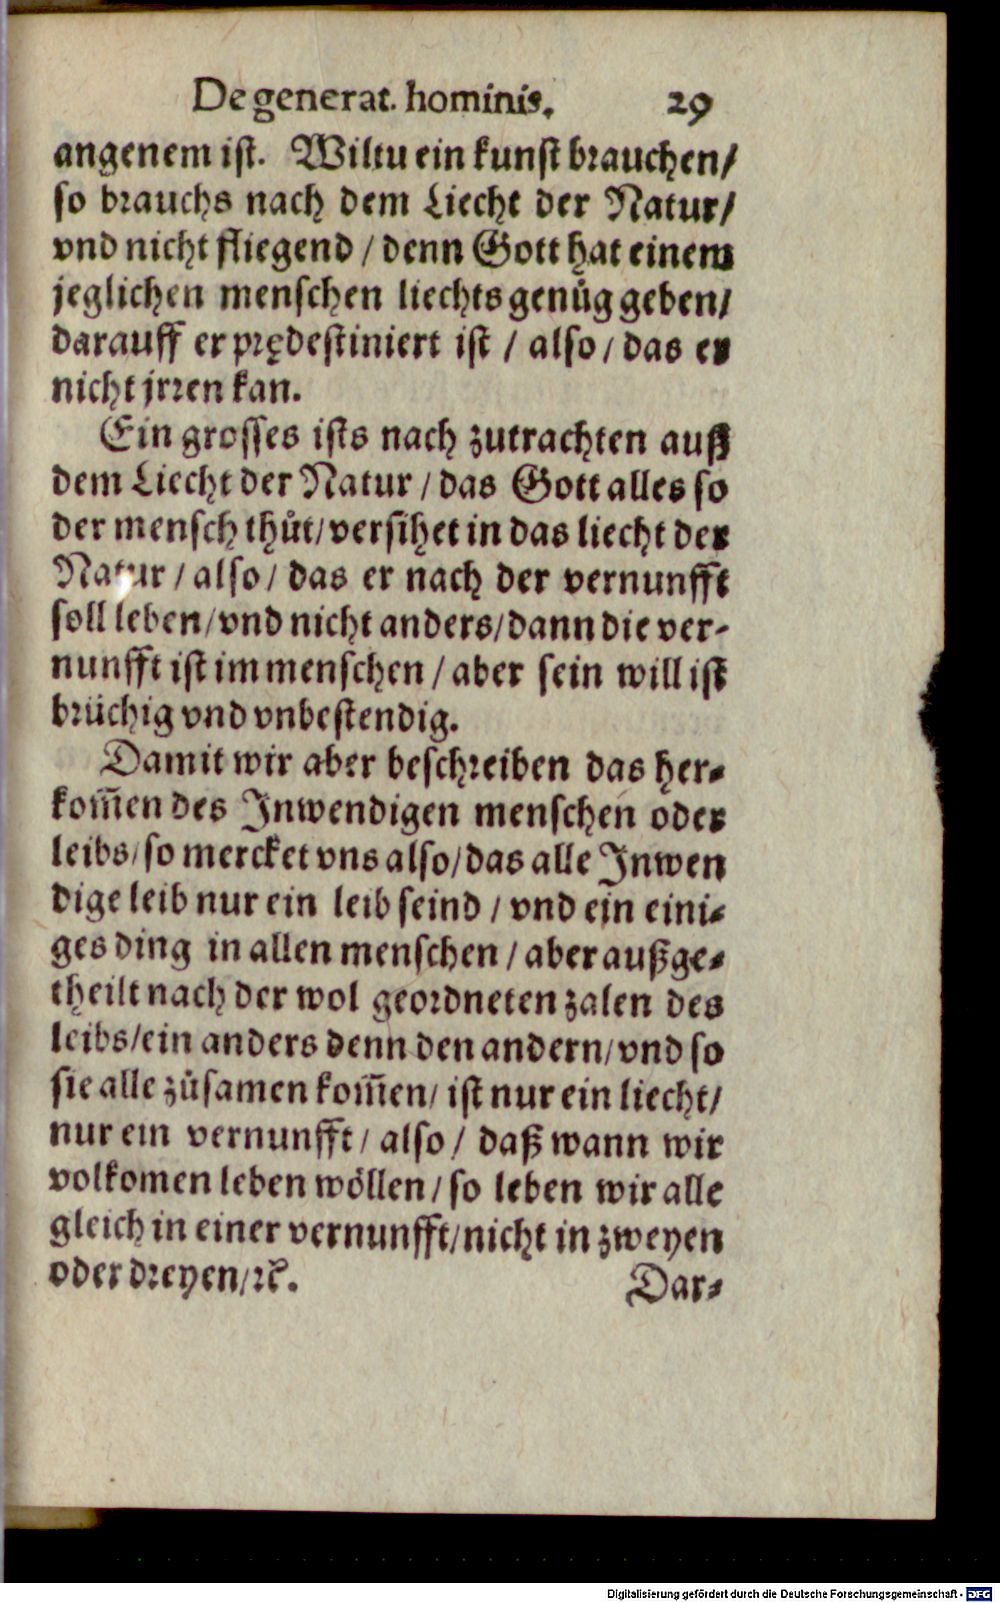 De generat. hominis. 29
angenem ist. Wiltu ein kunst brauchen/
so brauchs nach dem Liecht der Natur/
vnd nicht fliegend / denn Gott hat einem
jeglichen menschen liechts genůg geben/
darauff er prędestiniert ist / also / das er
nicht jrren kan.
Ein grosses ists nach zutrachten auß
dem Liecht der Natur / das Gott alles so
der mensch thůt / versihet in das liecht der
Natur / also / das er nach der vernunfft
soll leben / vnd nicht anders / dann die ver-
nunfft ist im menschen / aber sein will ist
brüchig vnd vnbestendig.
Damit wir aber beschreiben das her-
kom̃en des Inwendigen menschen oder
leibs / so mercket vns also / das alle Inwen
dige leib nur ein leib seind / vnd ein eini-
ges ding in allen menschen / aber außge-
theilt nach der wol geordneten zalen des
leibs / ein anders denn den andern / vnd so
sie alle zůsamen kom̃en / ist nur ein liecht /
nur ein vernunfft / also / daß wann wir
volkomen leben wöllen / so leben wir alle
gleich in einer vernunfft / nicht in zweyen
oder dreyen / ꝛc.
Dar-
Digitalisierung gefördert durch die Deutsche Forschungsgemeinschaft - DFG